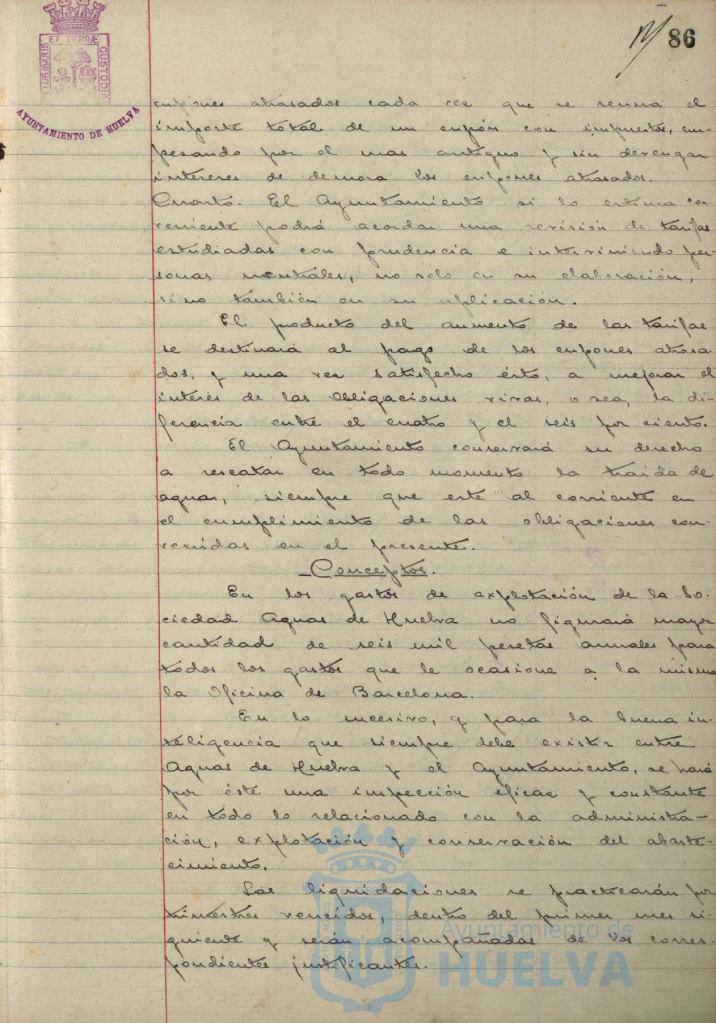 86
PORTUS MARIS ET TERRÆ CUSTODIA
AYUNTAMIENTO DE HUELVA
cupones atrasados cada vez que se reuna el
importe total de un cupón con impuestos, em-
pesando por el mas antiguo y sin devengar
interes de demora los cupones atrasados.
Cuarto. El Ayuntamiento si lo estima con-
veniente podrá acordar una revisión de tarifas
estudiadas con prudencia e interviniendo per-
sonas neutrales, no solo en su elaboración,
sino también en su aplicación.
El producto del aumento de las tarifas
se destinará al pago de los cupones atrasa-
dos, y una vez satisfecho ésto, a mejorar el
interés de las obligaciones vivas, o sea, la di-
ferencia entre el cuatro y el seis por ciento.
El Ayuntamiento conservará su derecho
a rescatar en todo momento la traida de
aguas, siempre que esté al corriente en
el cumplimiento de las obligaciones con-
venidas en el presente.
Conceptos.
En los gastos de explotación de la So-
ciedad Aguas de Huelva no figurará mayor
cantidad de seis mil pesetas anuales para
todos los gastos que le ocasione a la misma
la Oficina de Barcelona.
En lo sucesivo, y para la buena in-
teligencia que siempre debe existir entre
Aguas de Huelva y el Ayuntamiento, se hará
por éste una inspección eficaz y constante
en todo lo relacionado con la administra-
ción, explotación y conservación del abaste-
cimiento.
Las liquidaciones se practicarán por
trimestres vencidos, dentro del primer mes si-
guiente y serán acompañadas de los corres-
pondientes justificantes.
Ayuntamiento de
HUELVA